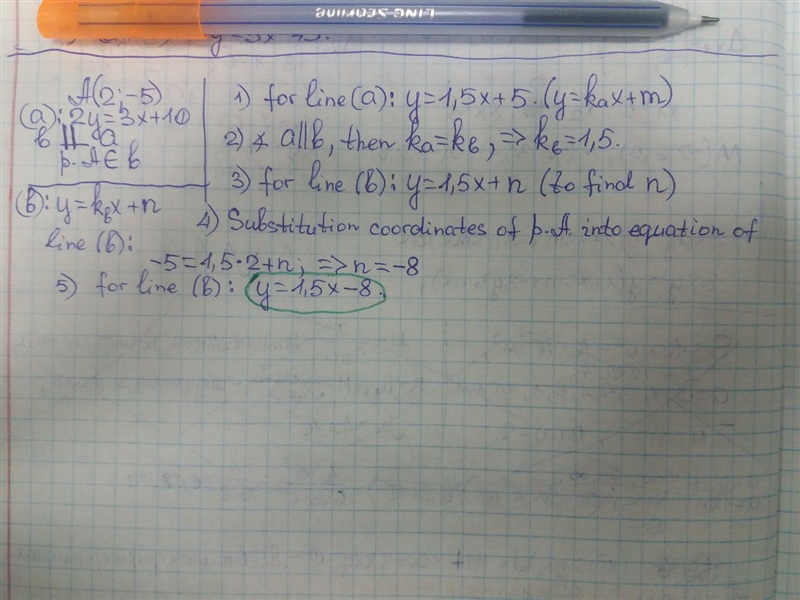 LINC SEOFLINE
A(2;-5)
(a): 2y=3x+10
b || a
p. A∈b
(b): y=k_b x+n
1) for line (a): y=1,5x+5. (y=k_a x+m)
2) ∡ a||b, then k_a=k_b, => k_b=1,5.
3) for line (b): y=1,5x+n (to find n)
4) Substitution coordinates of p.A. into equation of
line (b):
-5=1,5·2+n; => n=-8
5) for line (b): y=1,5x-8.